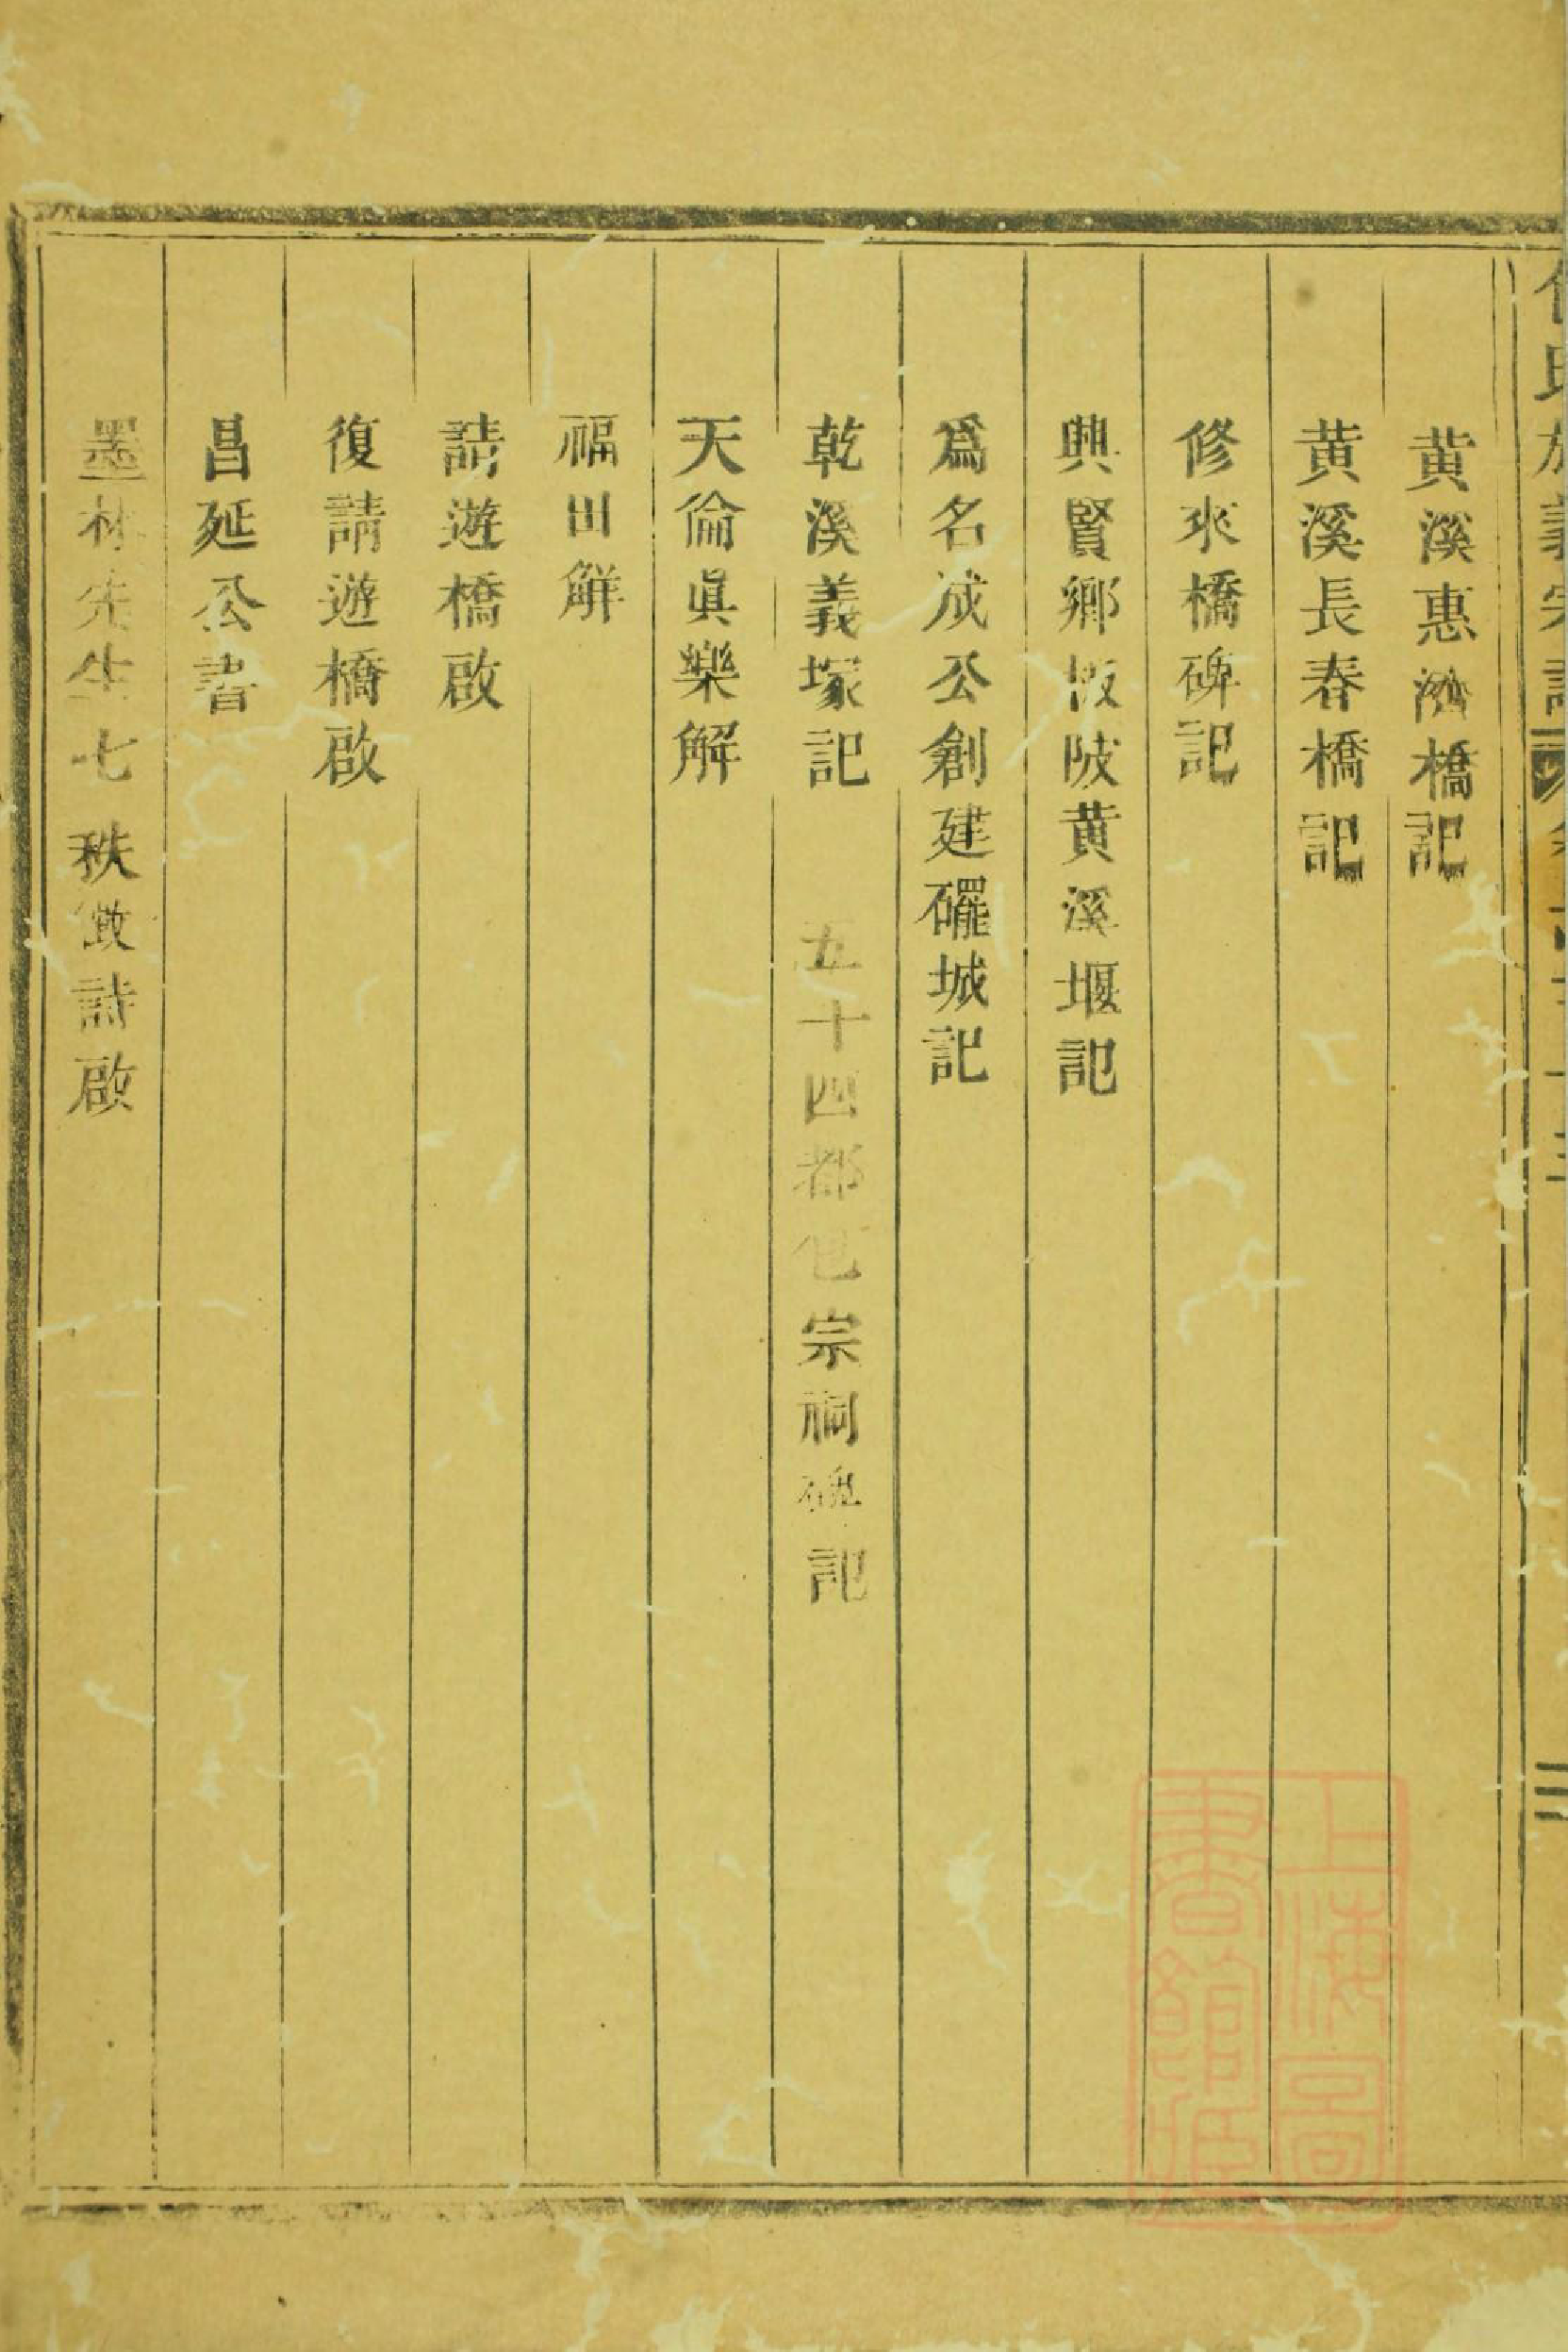 黃溪惠濟橋記
黃溪長春橋記
修來橋碑記
興賢鄉坂陂黃溪堰記
爲名成公創建礶城記
乾溪義塚記 五十四都包宗祠碑記
天倫眞樂解
福田解
請遊橋啟
復請遊橋啟
昌延公書
墨林先生七秩徵詩啟
上海圖書館藏